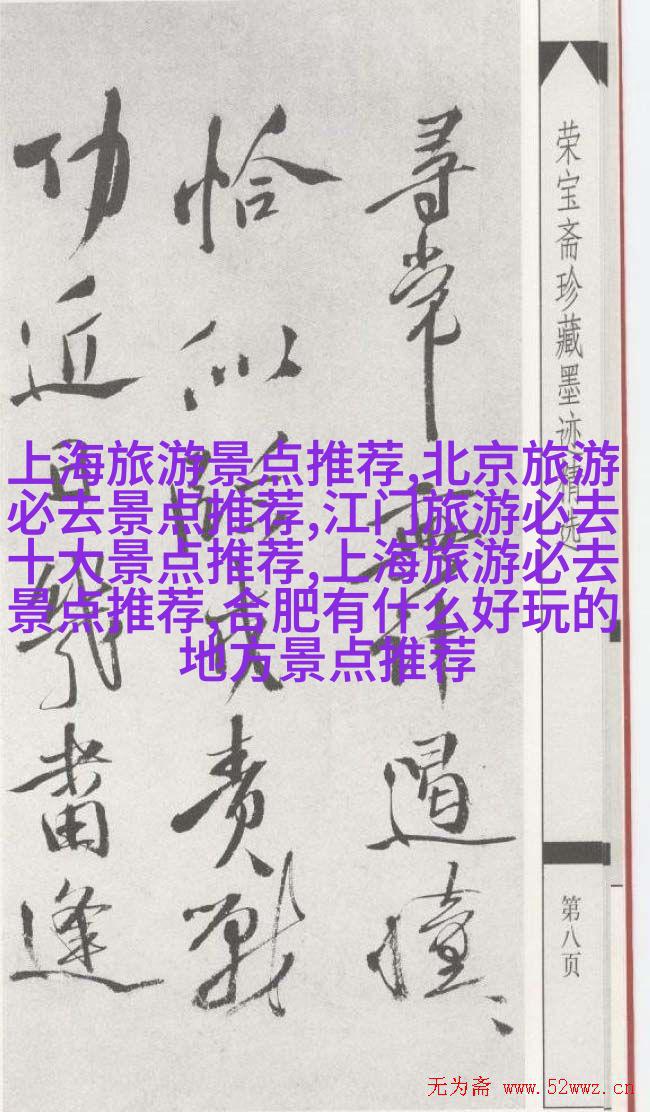 尋常無計遏憧、
恰似責戰
功近日幾番逢
荣宝斋珍藏墨迹精选
第八页
上海旅游景点推荐,北京旅游
必去景点推荐,江门旅游必去
十大景点推荐,上海旅游必去
景点推荐,合肥有什么好玩的
地方景点推荐
无为斋 www.52wwz.cn